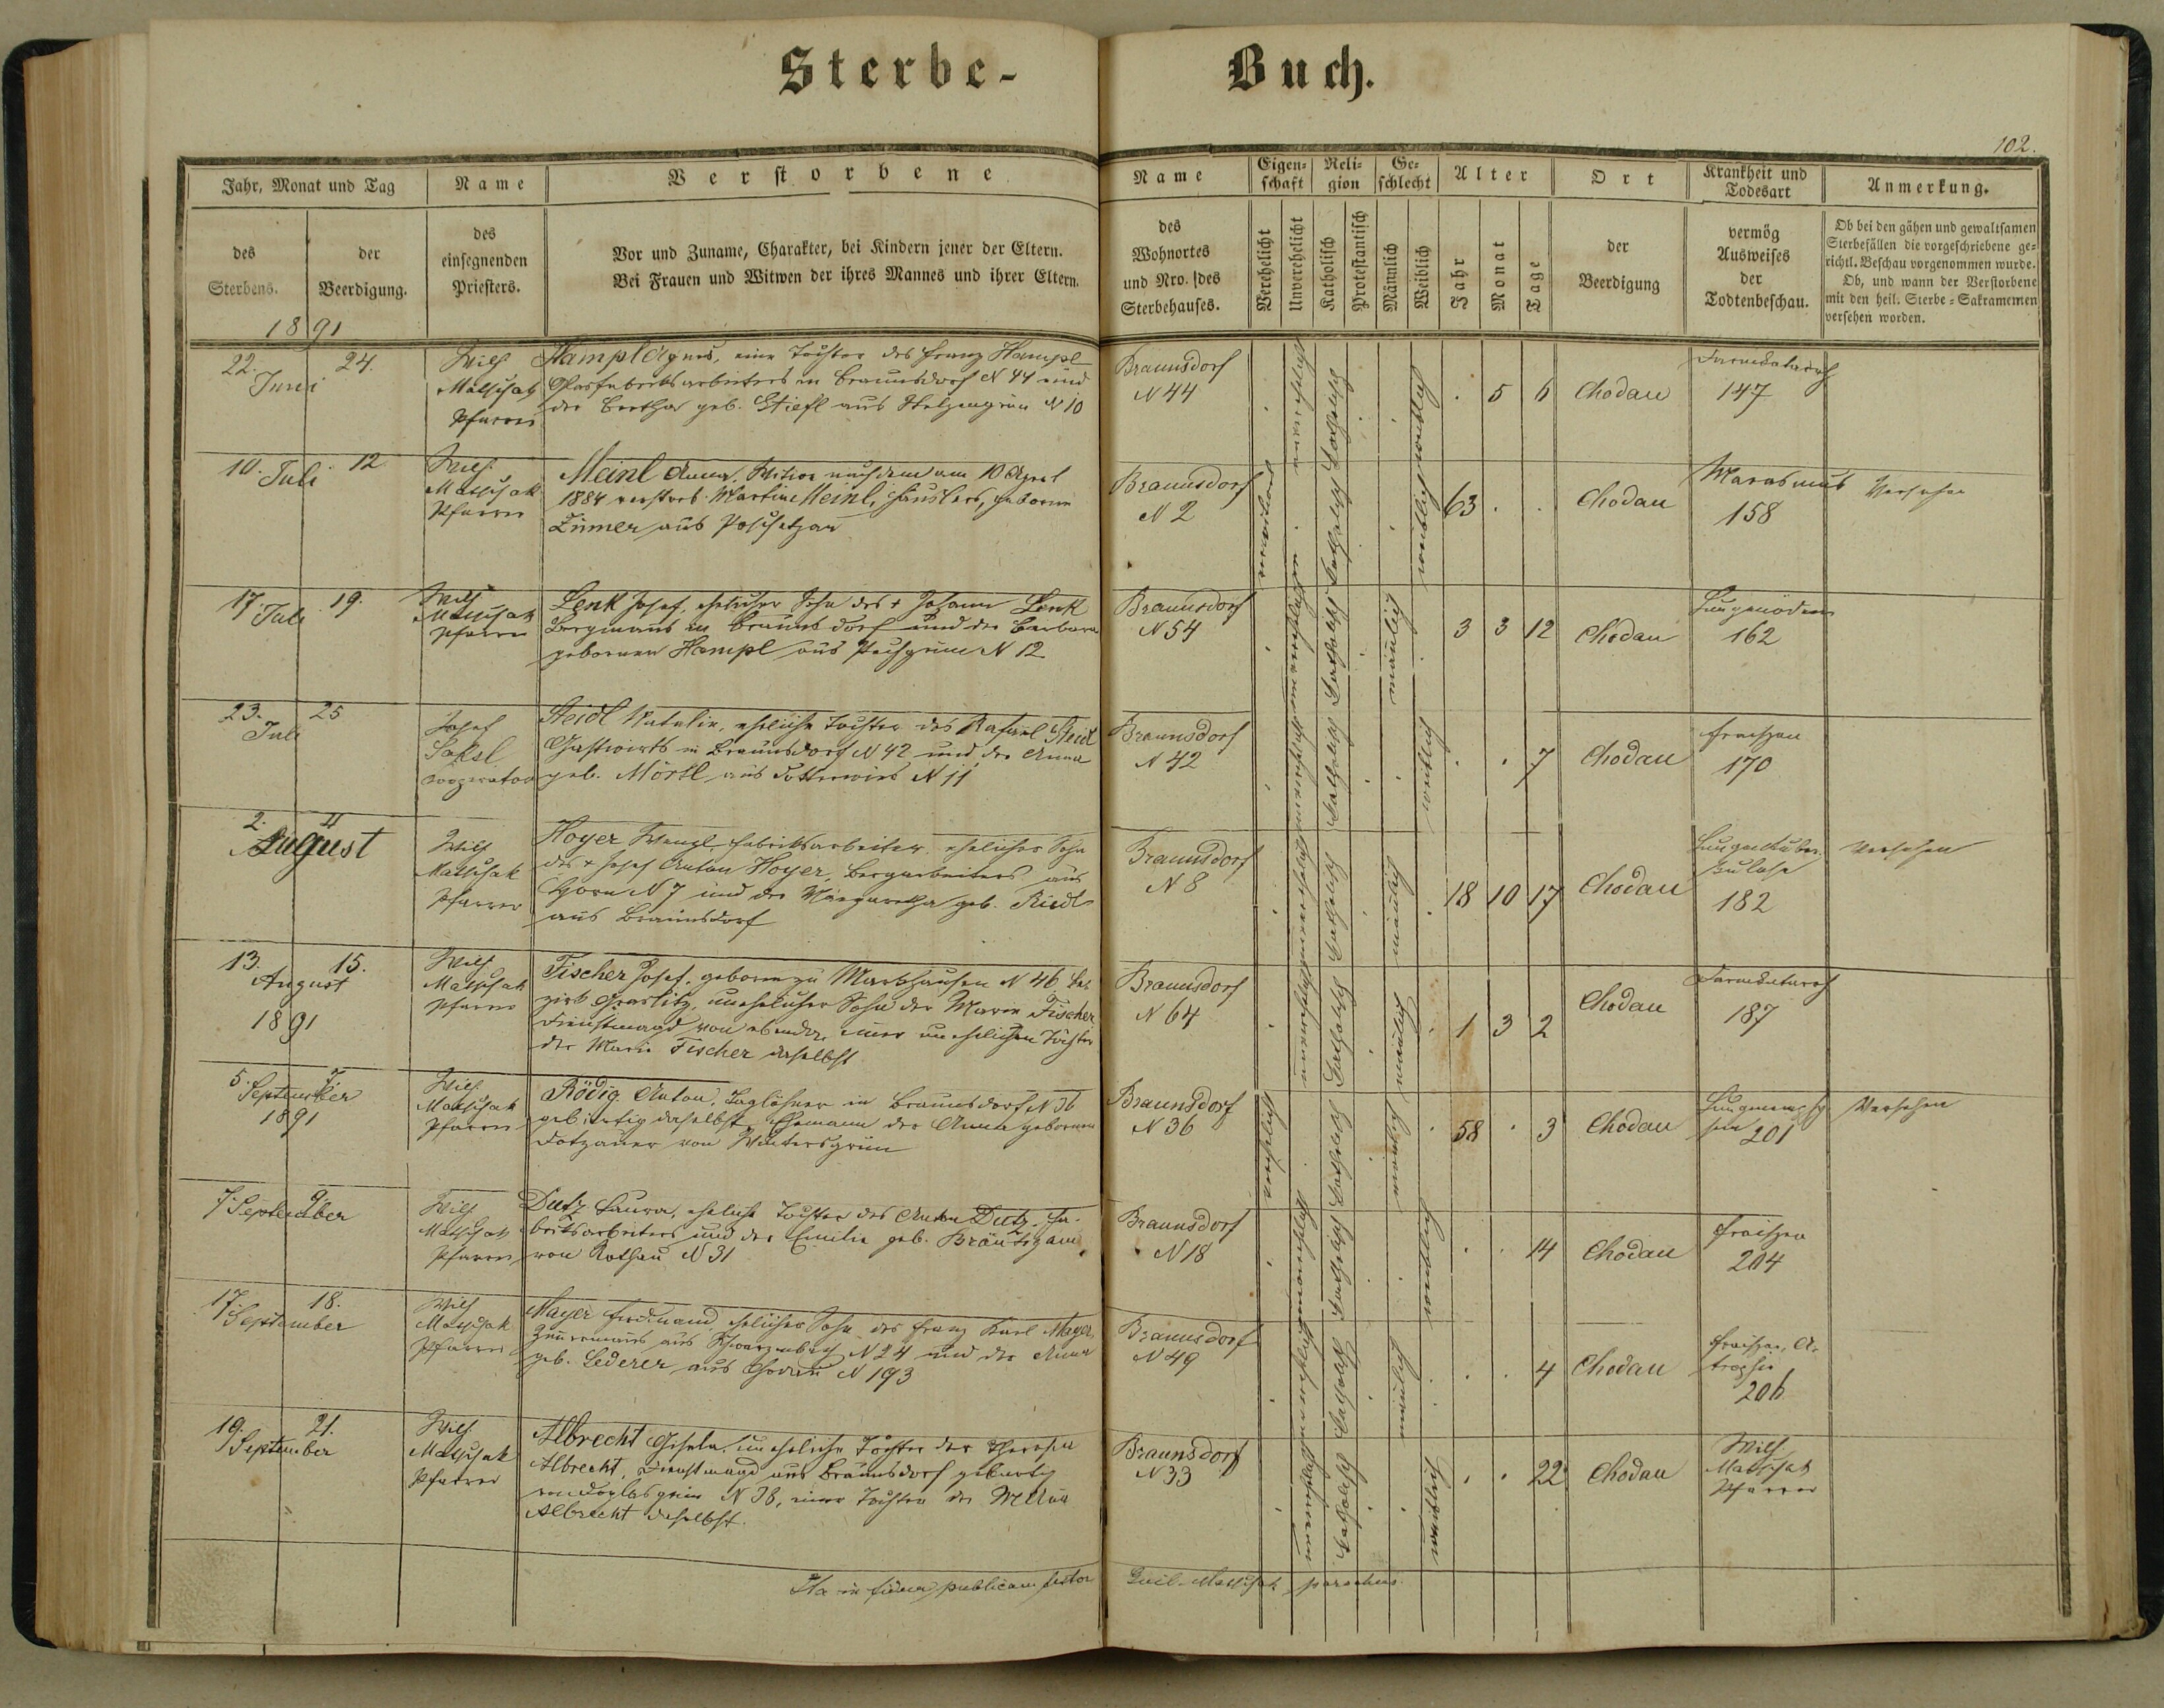 Sterbe-Buch.
102.
Jahr, Monat und Tag
des Sterbens.
der Beerdigung.
1891
Name
des
einsegnenden
Priesters.
Verstorbene
Vor und Zuname, Charakter, bei Kindern jener der Eltern.
Bei Frauen und Witwen der ihres Mannes und ihrer Eltern.
Name
des
Wohnortes
und Nro. des
Sterbehauses.
Eigenschaft
Verehelicht
Unverehelicht
Religion
Katholisch
Protestantisch
Geschlecht
Männlich
Weiblich
Alter
Jahr
Monat
Tage
Ort
der
Beerdigung
Krankheit und
Todesart
vermög
Ausweises
der
Todtenbeschau.
Anmerkung.
Ob bei den gähen und gewaltsamen
Sterbefällen die vorgeschriebene ge=
richtl. Beschau vorgenommen wurde.
Ob, und wann der Verstorbene
mit den heil. Sterbe=Sakramenten
versehen worden.
22. Juni 24.
Wilh
Matschak
Pfarrer
Hampl Agnes, eine Tochter des Franz Hampl
Glasfabriksarbeiters in Braunsdorf N 44 und
der Bertha geb. Stiefl aus N 10
Braunsdorf
N 44
unverehelicht katholisch weiblich
. 5 6
Chodau
Darmkatarrh
147
10. Juli 12
Wilh.
Matschak
Pfarrer
Meinl Anna, Witwe nach dem am 10 April
1884 verstorb. Martin Meinl, Häuslers, geborne
aus Poschetzau
Braunsdorf
N 2
verwitwet katholisch weiblich
63 . .
Chodau
Marasmus
158
Versehen
17. Juli 19.
Wilh
Matschak
Pfarrer
Lenk Josef, ehelicher Sohn des + Johann Lenk
Bergmanns in Braunsdorf und der Barbara
gebornen Hampl aus N 12
Braunsdorf
N 54
unverehelicht katholisch männlich
3 3 12
Chodau
Lungenödem
162
23. Juli 25
Josef
Saksl
Cooperator
Heidl Natalie, eheliche Tochter des Rafael Heidl
Gastwirts in Braunsdorf N 42 und der Anna
geb. Mörtl aus N 11
Braunsdorf
N 42
unverehelicht katholisch weiblich
. . 7
Chodau
Fraisen
170
2. August 4
Wilh
Matschak
Pfarrer
Hoyer Wenzl, Fabriksarbeiter, ehelicher Sohn
des + Josef Anton Hoyer, Bergarbeiters aus
Horn N 7 und der Margaretha geb. Riedl
aus Braunsdorf
Braunsdorf
N 8
unverehelicht katholisch männlich
18 10 17
Chodau
Lungentuber
kulose
182
Versehen
13. August 15.
1891
Wilh
Matschak
Pfarrer
Fischer Josef, geboren zu Markhausen N 46 Be
zirk Graslitz, unehelicher Sohn der Marie Fischer
Dienstmagd von ebenda, einer unehelichen Tochter
der Marie Fischer daselbst
Braunsdorf
N 64
unverehelicht katholisch männlich
1 3 2
Chodau
Darmkatarrh
187
5. September 7.
1891
Wilh.
Matschak
Pfarrer
Rödig Anton, Taglöhner in Braunsdorf N 36
gebürtig daselbst, Ehemann der Anna gebornen
Dotzauer von Wintersgrün
Braunsdorf
N 36
verehelicht katholisch männlich
58 . 3
Chodau
201
Versehen
7. September 9.
Wilh
Matschak
Pfarrer
Dutz Laura, eheliche Tochter des Anton Dutz, Fa-
briksarbeiters und der Emilie geb. Bräutigam
von Rothau N 31
Braunsdorf
N 18
unverehelicht katholisch weiblich
. . 14
Chodau
Fraisen
204
17. September 18.
Wilh
Matschak
Pfarrer
Mayer Ferdinand, ehelicher Sohn des Franz Karl Mayer
Zimmermanns aus Schwarzenbach N 24 und der Anna
geb. Lederer aus Chodau N 193
Braunsdorf
N 49
unverehelicht katholisch männlich
. . 4
Chodau
Fraisen, A-
trophie
206
19. September 21.
Wilh.
Matschak
Pfarrer
Albrecht Gisela, uneheliche Tochter der Theresia
Albrecht, Dienstmagd aus Braunsdorf gebürtig
von Doglasgrün N 38, einer Tochter der
Albrecht daselbst.
Braunsdorf
N 33
unverehelicht katholisch weiblich
. . 22
Chodau
Wilh.
Matschak
Pfarrer
Ita in fidem publicam testor Guil. Matschak parochus